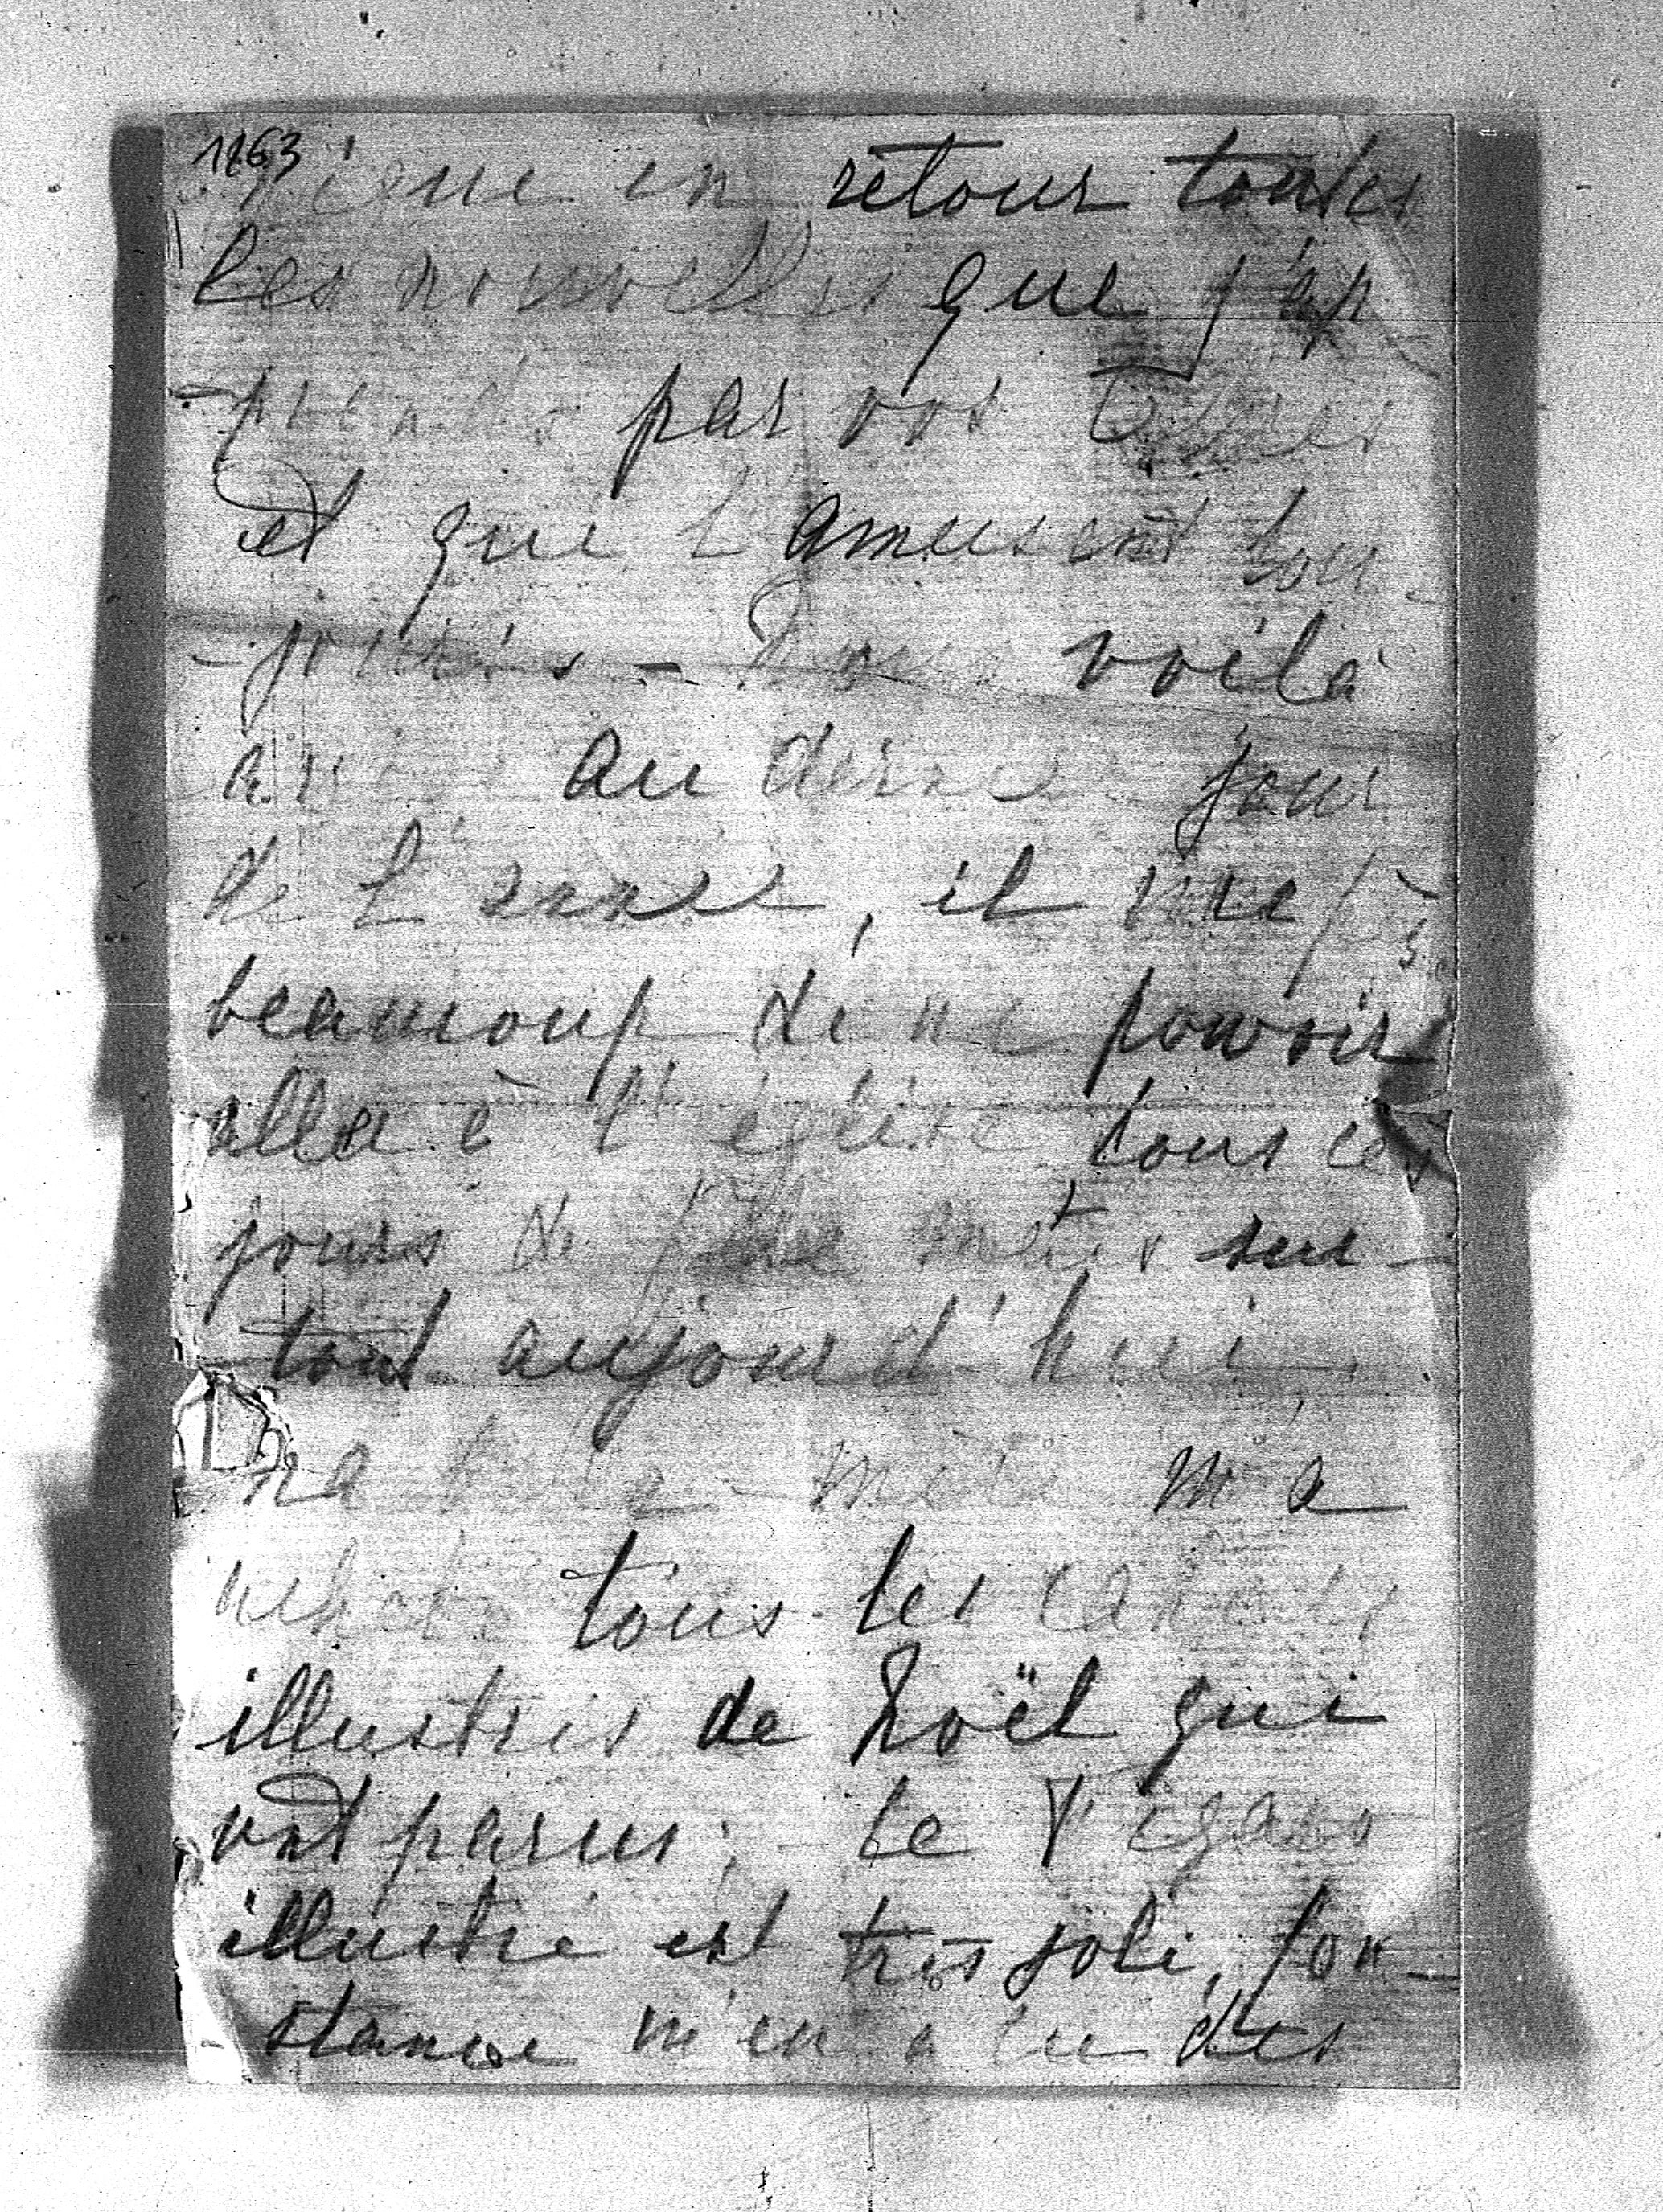 1863
en retour toutes
les nouvelles que j'ap
-prends par vos lettres
et qui l'amusent tou-
-jours - Nous voilà
au dernier jour
de l'année, il me
beaucoup de ne pouvoir
aller à l'église tous ces
jours de fête mais sur-
tout aujourd'hui.
ma mère m'a
tous les
illustrés de Noël qui
ont parus; Le Figaro
illustré est très joli, Con-
stance m'en a lu des